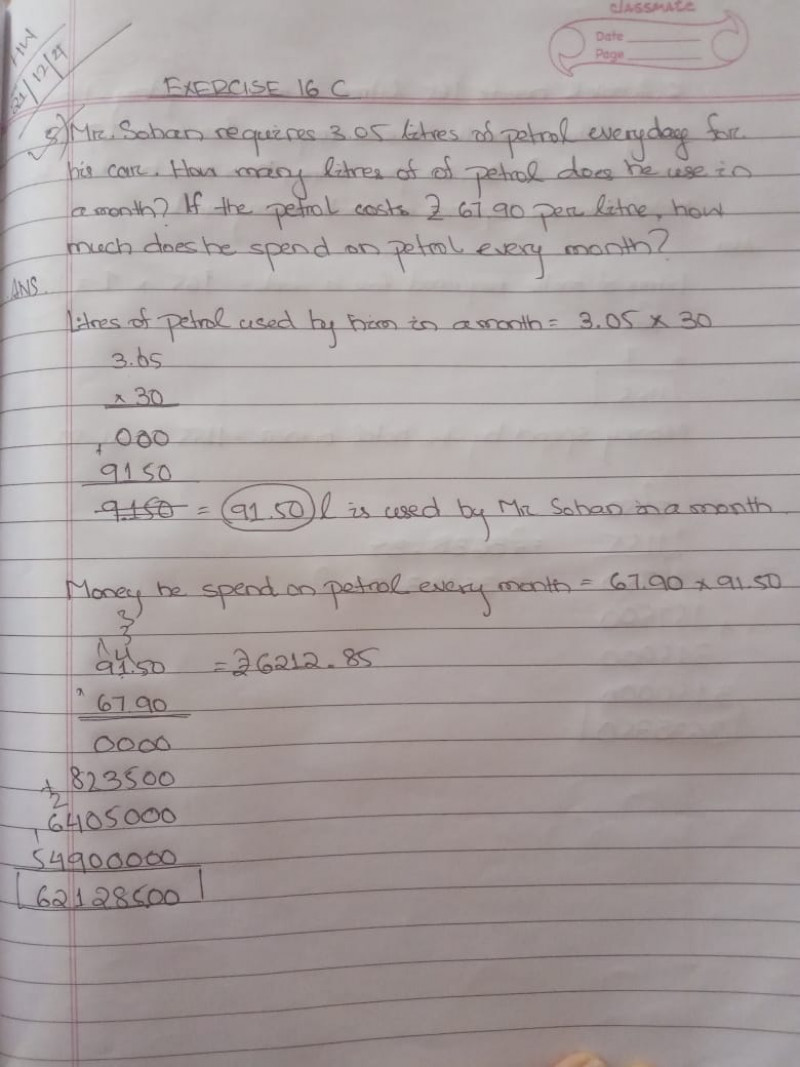 classmate
Date
Page
HW
21/12/21
EXERCISE 16 C
8) Mr. Sohan requires 3.05 litres of petrol everyday for
his car. How many litres of of petrol does he use in
a month? If the petrol costs ₹ 67.90 per litre, how
much does he spend on petrol every month?
ANS.
Litres of petrol used by him in a month = 3.05 × 30
3.05
× 30
+ 000
9150
9.150 = 91.50 l is used by Mr Sohan in a month
Money he spend on petrol every month = 67.90 × 91.50
3
3
1 4
91.50 = ₹6212.85
× 67.90
0000
+ 823500
2
6405000
1
54900000
62128500